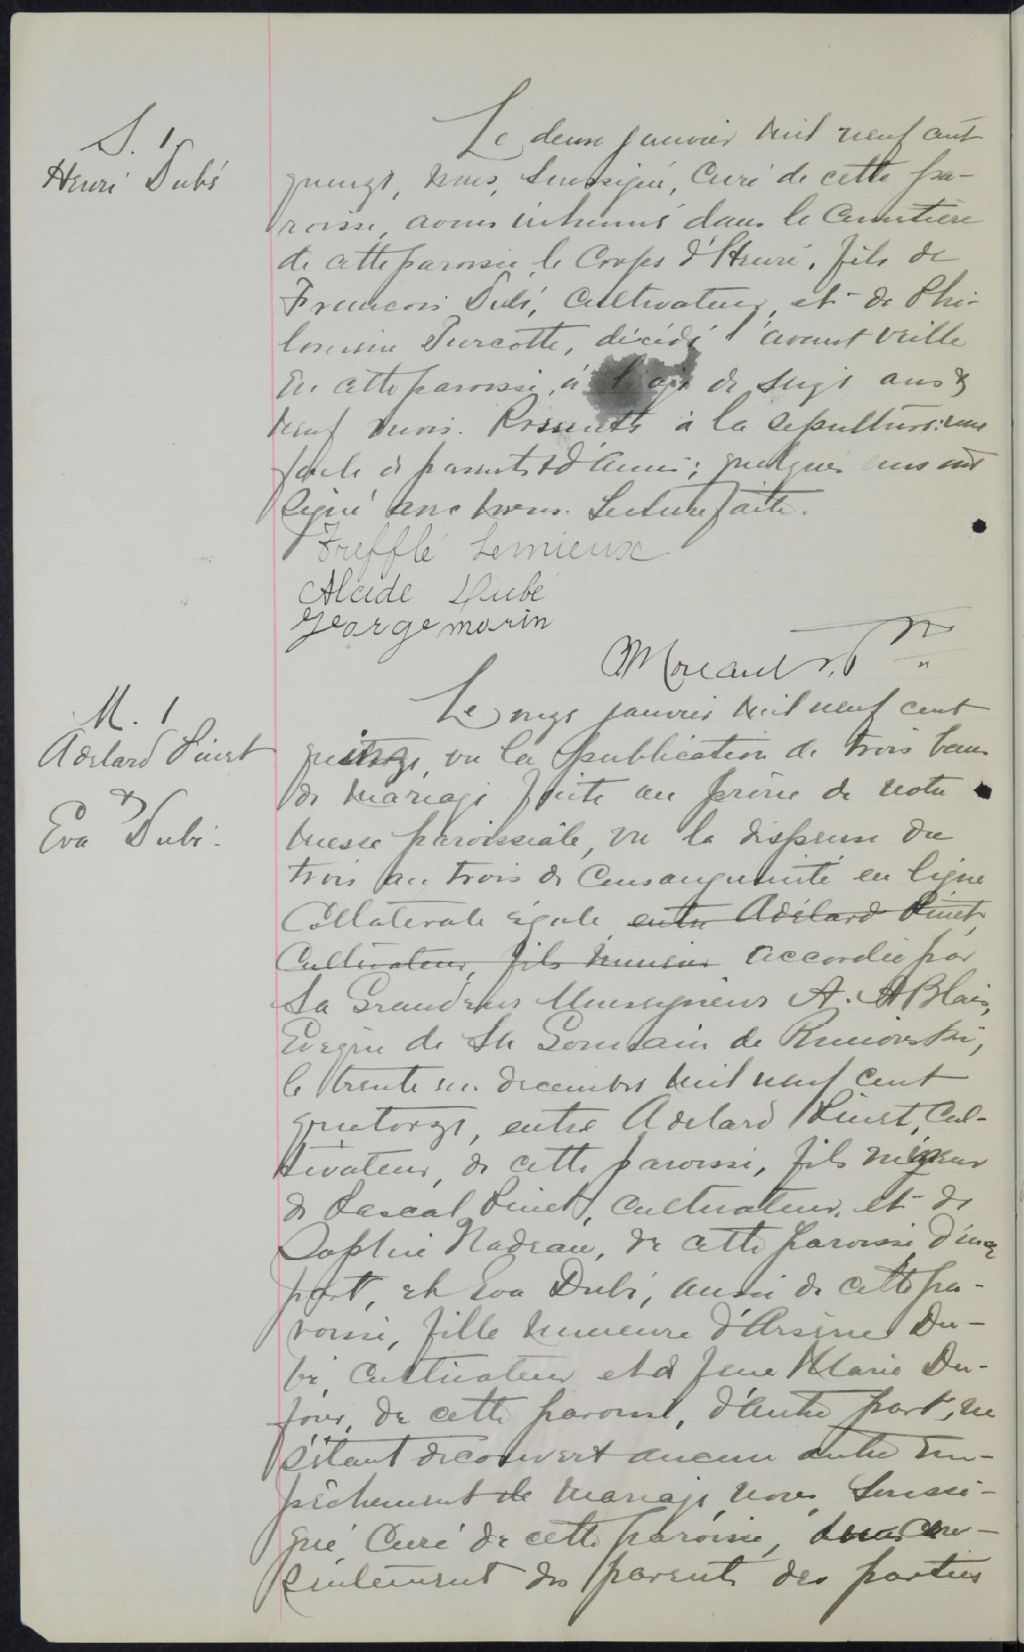 S. 1
Henri Dubé
Le deux janvier mil neuf cent
quinze, nous, soussigné, Curé de cette pa-
roisse, avons inhumé dans le Cimetière
de cette paroisse le Corps d'Henri, fils de
Francois Dubé, Cultivateur, et de Phi-
lomène Turcotte, décédé l'avant veille
en cette paroisse, à l'age de seize ans &
neuf mois. Présents à la sépulture: une
foule de parents & d'amis; quelques uns ont
signé avec nous. Lecture faite.
Trefflé Lemieux
Alcide Dubé
George morin
Morault
M. 1
Adelard Pinet
&
Eva Dubé.
Le onze janvier mil neuf cent
quinze, vu la publication de trois bans
de mariage faite au prône de notre
messe paroissiale, vu la dispense du
trois au trois de Consanguinité en ligne
Collaterale égale entre Adélard Pinet,
Cultivateur, fils mineur accordée par
Sa Grandeur Monseigneur A. A Blais,
Evêque de St Germain de Rimouski,
le trente un decembre mil neuf cent
quatorze, entre Adelard Pinet, Cul-
tivateur, de cette paroisse, fils mineur
de Pascal Pinet, cultivateur, et de
Sophie Nadeau, de cette paroisse, d'une
part, et Eva Dubé, aussi de cette pa-
roisse, fille mineure d'Arsène Du-
bé, cultivateur et d feue Marie Du-
four, de cette paroisse, d'autre part, ne
s'étant decouvert aucun autre em-
pêchement de mariage, nous, soussi-
gné Curé de cette paroisse, du con-
sentement des parents des parties